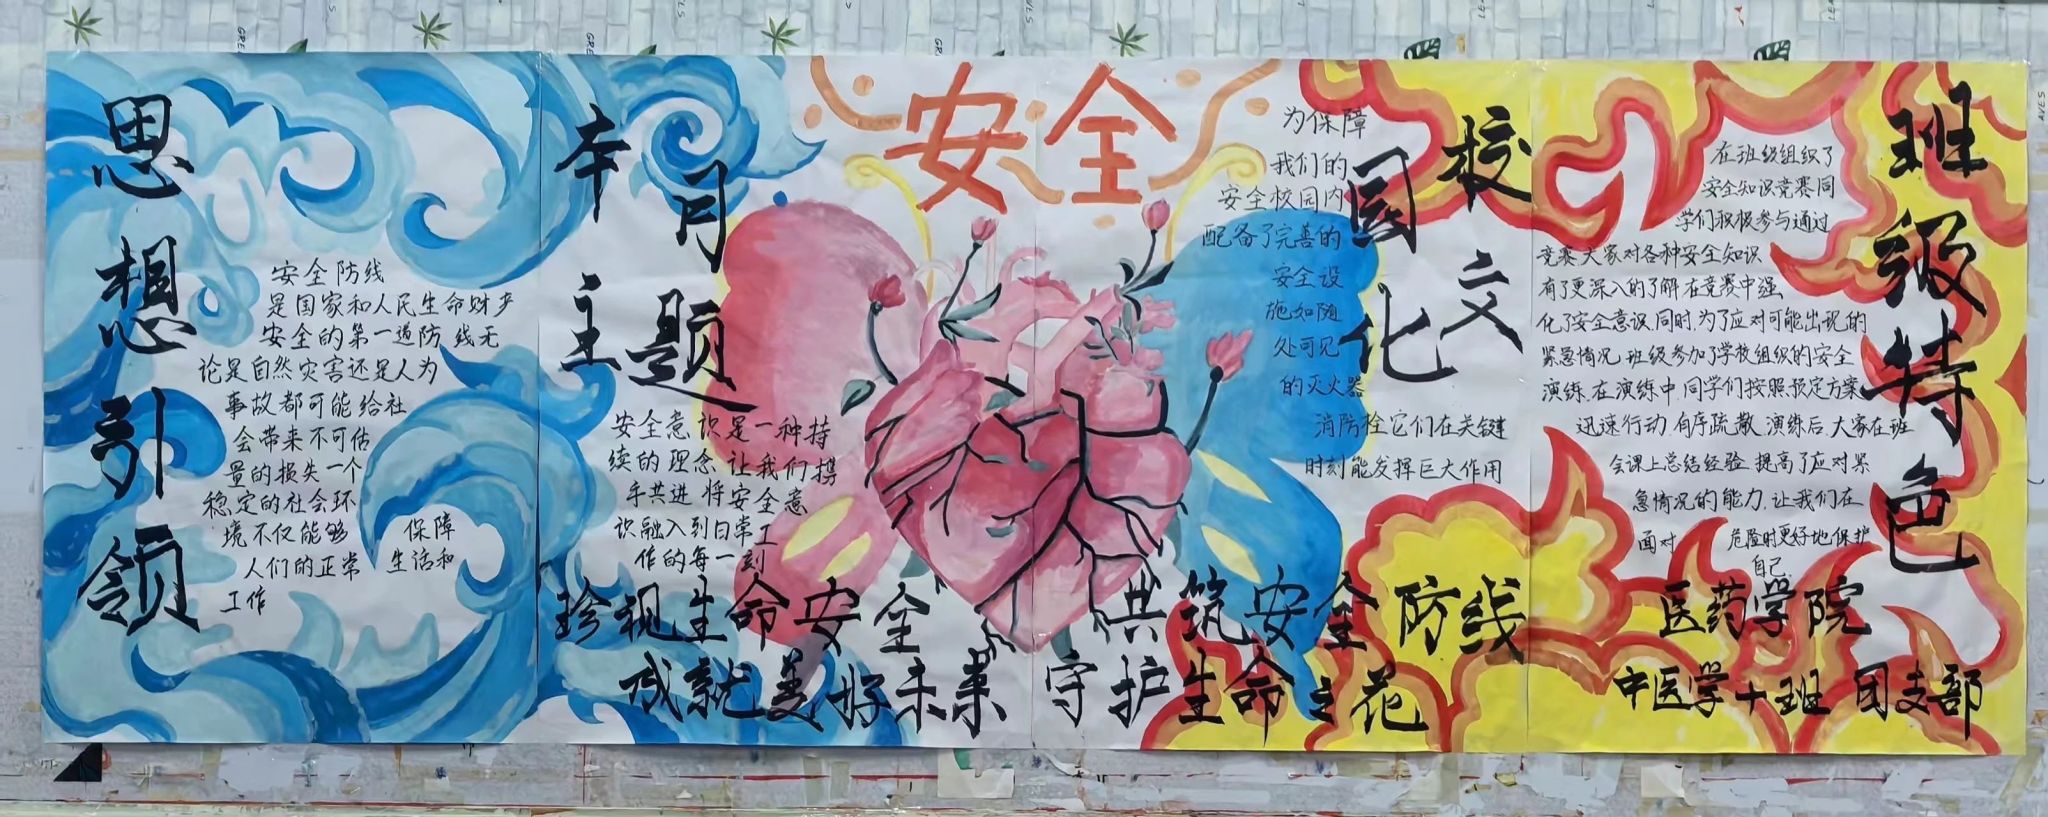 思想引领
安全防线
是国家和人民生命财产
安全的第一道防线无
论是自然灾害还是人为
事故都可能给社
会带来不可估
量的损失一个
稳定的社会环
境不仅能够 保障
人们的正常 生活和
工作
本月
主题
安全意识是一种持
续的理念让我们携
手共进将安全意
识融入到日常工
作的每一刻
安全
为保障
我们的
安全校园内
配备了完善的
安全设
施如随
处可见
的灭火器
消防栓它们在关键
时刻能发挥巨大作用
校
园文化
班级特色
在班级组织了
安全知识竞赛同
学们积极参与通过
竞赛大家对各种安全知识
有了更深入的了解在竞赛中强
化了安全意识.同时.为了应对可能出现的
紧急情况.班级参加了学校组织的安全
演练.在演练中.同学们按照预定方案
迅速行动.有序疏散.演练后.大家在班
会课上总结经验.提高了应对紧
急情况的能力.让我们在
面对 危险时更好地保护
自己.
珍视生命安全 共筑安全防线
成就美好未来 守护生命之花
医药学院
中医学十班 团支部